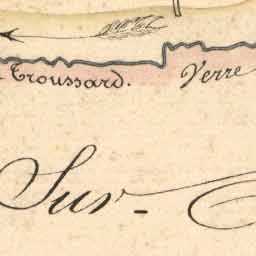 Troussard. Verre
Sur-